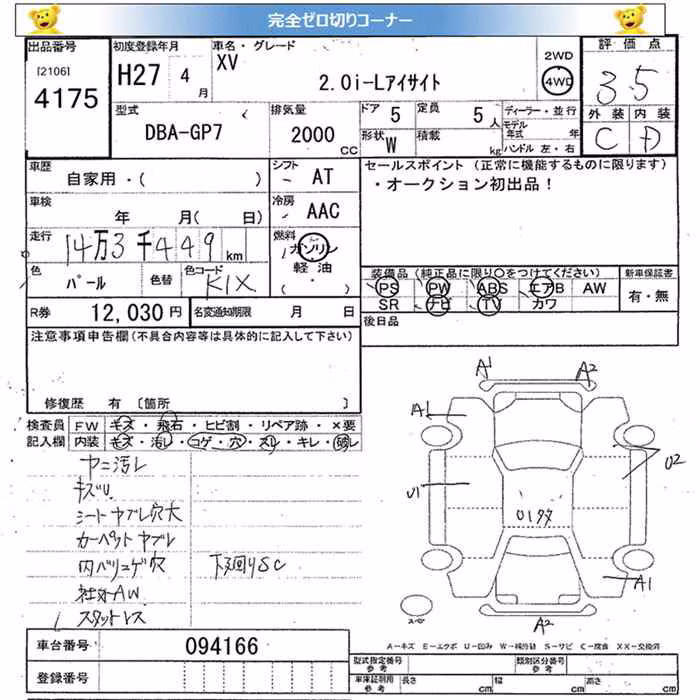 完全ゼロ切りコーナー
出品番号 初度登録年月 車名・グレード 2WD 評価点
[2106] XV 4WD
4175 H27 4月 2.0i-Lアイサイト 3.5
型式 排気量 ドア 5 定員 5人 ディーラー・並行 外装 内装
DBA-GP7 2000CC 形状 W 積載 kg モデル年式 年 C D
ハンドル 左・右
車歴 シフト セールスポイント (正常に機能するものに限ります)
自家用・( ) AT ・オークション初出品！
車検 冷房
年 月( 日) AAC
走行 燃料
14万3千449km ガソリン
軽油
( ・ )
色 色替 色コード 装備品 (純正品に限り○をつけてください) 新車保証書
パール K1X PS PW ABS エアB AW 有・無
SR ナビ TV カワ
R券 12,030円 名変通知期限 月 日 後日品
注意事項申告欄(不具合内容等は具体的に記入して下さい)
修復歴 有 [箇所 ]
検査員 FW キズ・飛石・ヒビ割・リペア跡・×要
記入欄 内装 キズ・汚レ・コゲ・穴・スレ・キレ・破レ
ヤニ汚レ
キズU
シートヤブレ穴大
カーペットヤブレ
内バリコゲ穴 下廻りSC
社外AW
スタットレス
A1 A2
A1
U2
U1
A1
スペア
A2
A-キズ E-エクボ U-凹み W-補修跡 S-サビ C-腐食 XX-交換済
車台番号 094166
登録番号
型式指定番号 参考 類別区分番号 参考
車庫証明用 参考 長さ cm 幅 cm 高さ cm